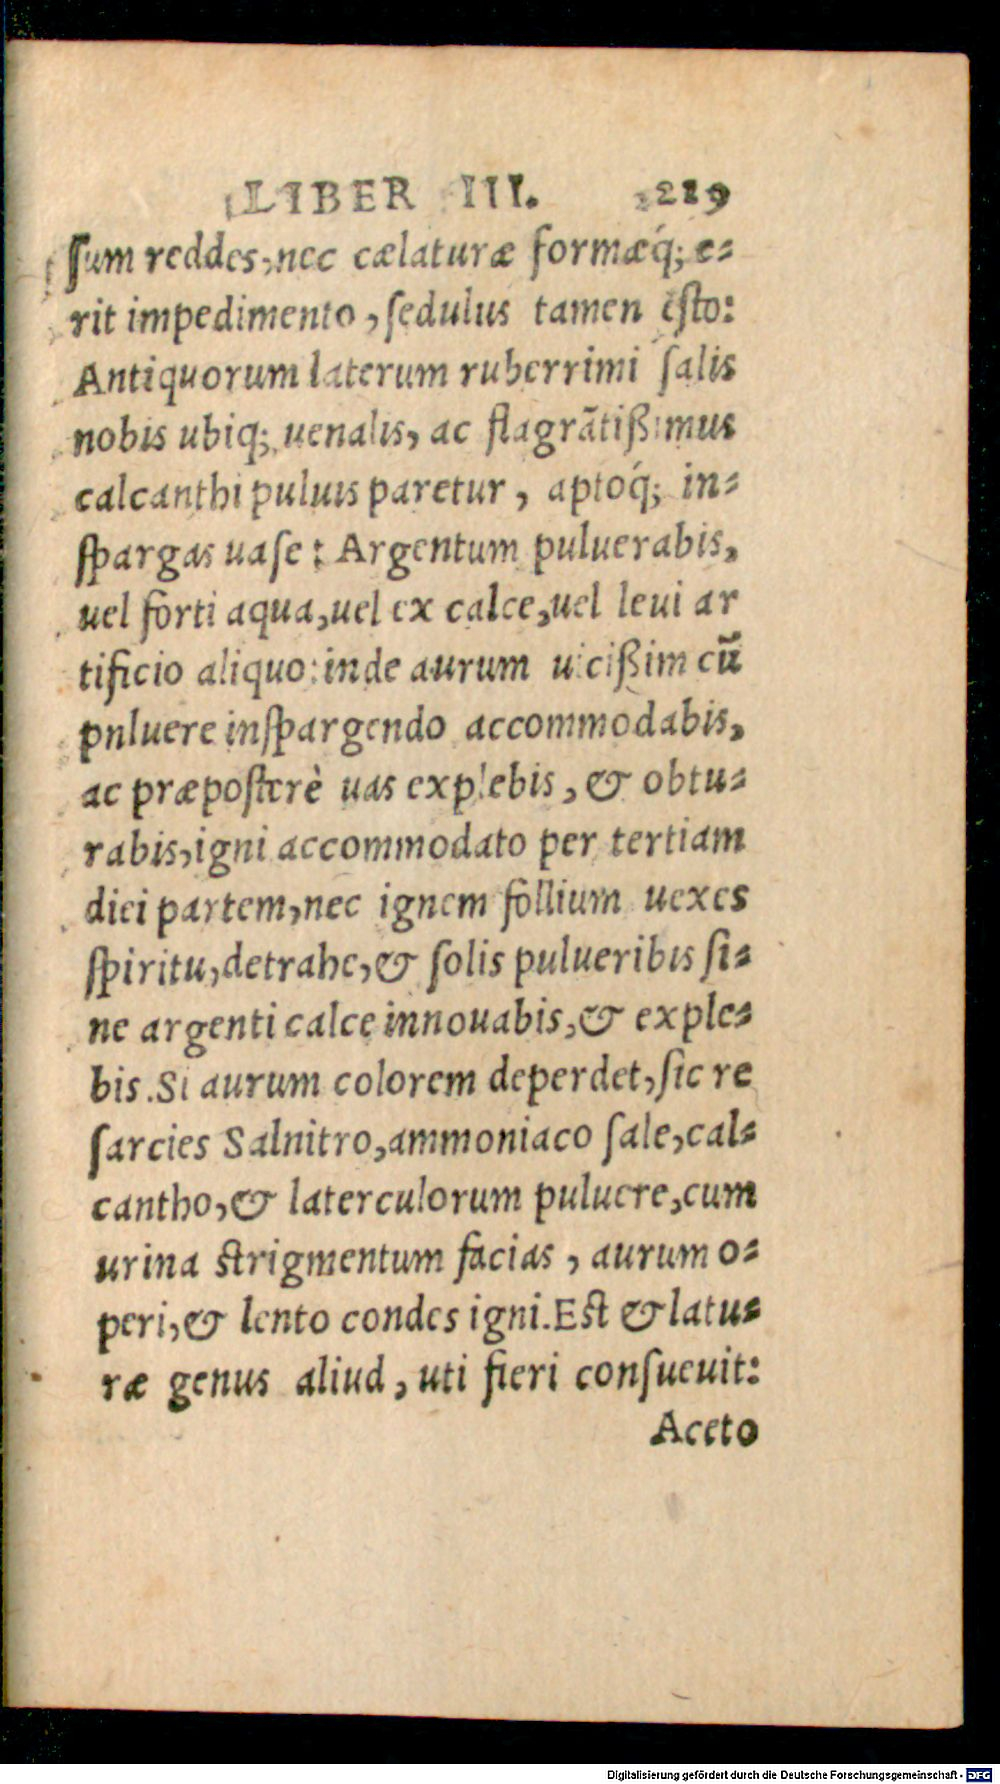 LIBER III. 219
ſum reddes, nec cælaturæ formæq́; e⸗
rit impedimento, ſedulus tamen eſto:
Antiquorum laterum ruberrimi ſalis
nobis ubiq; uenalis, ac flagrãtißimus
calcanthi puluis paretur, aptoq́; in⸗
ſpargas uaſe: Argentum puluerabis,
uel forti aqua, uel ex calce, uel leui ar
tificio aliquo: inde aurum uicißim cũ
pnluere inſpargendo accommodabis,
ac præpoſterè uas explebis, & obtu⸗
rabis, igni accommodato per tertiam
diei partem, nec ignem follium uexes
ſpiritu, detrahe, & ſolis pulueribis ſi⸗
ne argenti calce innouabis, & exple⸗
bis. Si aurum colorem deperdet, ſic re
ſarcies Salnitro, ammoniaco ſale, cal⸗
cantho, & laterculorum puluere, cum
urina ſtrigmentum facias, aurum o⸗
peri, & lento condes igni. Eſt & latu⸗
ræ genus aliud, uti fieri conſueuit:
Aceto
Digitalisierung gefördert durch die Deutsche Forschungsgemeinschaft - DFG